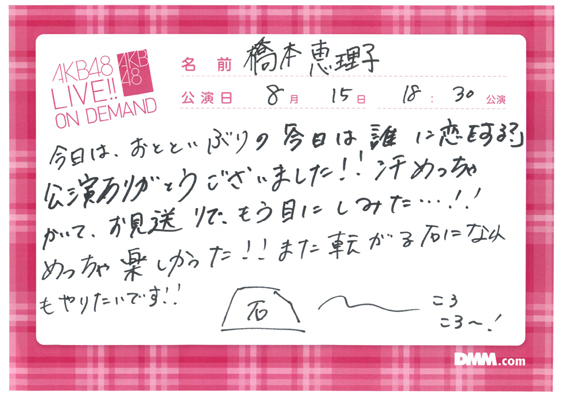 AKB48
LIVE!!
ON DEMAND
AKB
48
名前 橋本恵理子
公演日 8月 15日 18:30公演
今日は、おとといぶりの 今日は誰に恋をする?」
公演ありがとうございました!! 汗めっちゃ
かいて、お見送りで、もう目にしみた…!!
めっちゃ楽しかった!! また転がる石になれ
もやりたいです!!
石
ころ
ころ〜!
DMM.com